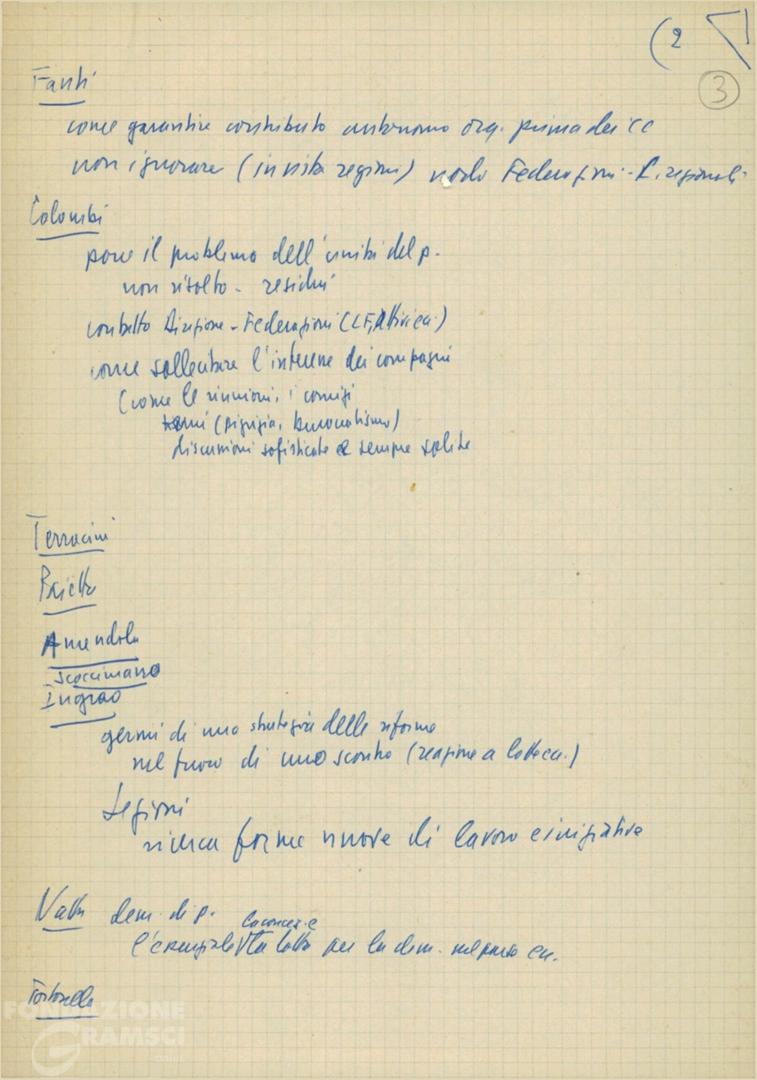 (2
3
Fanti
come garantire contributo autonomo org. prima dei CC
non ignorare (in vista regioni) nodo Federazioni - C. regionali
Colombi
pone il problema dell'unità del p.
non risolto - residui
contatto Direzione - Federazioni (CF,
come sollecitare l'interesse dei compagni
(come le riunioni, i comizi
temi (pigrizia, burocratismo)
discussioni sofisticate e sempre solite
Terracini
Pajetta
Amendola
Scoccimarro
Ingrao
germi di una strategia delle riforme
nel fuoco di uno scontro (reazione a lotte
Regioni
ricerca forme nuove di lavoro e iniziativa
Natta dem. di p.
la concez. e
l'essenziale la lotta per la dem. nel paese
Tortorella
FONDAZIONE
GRAMSCI